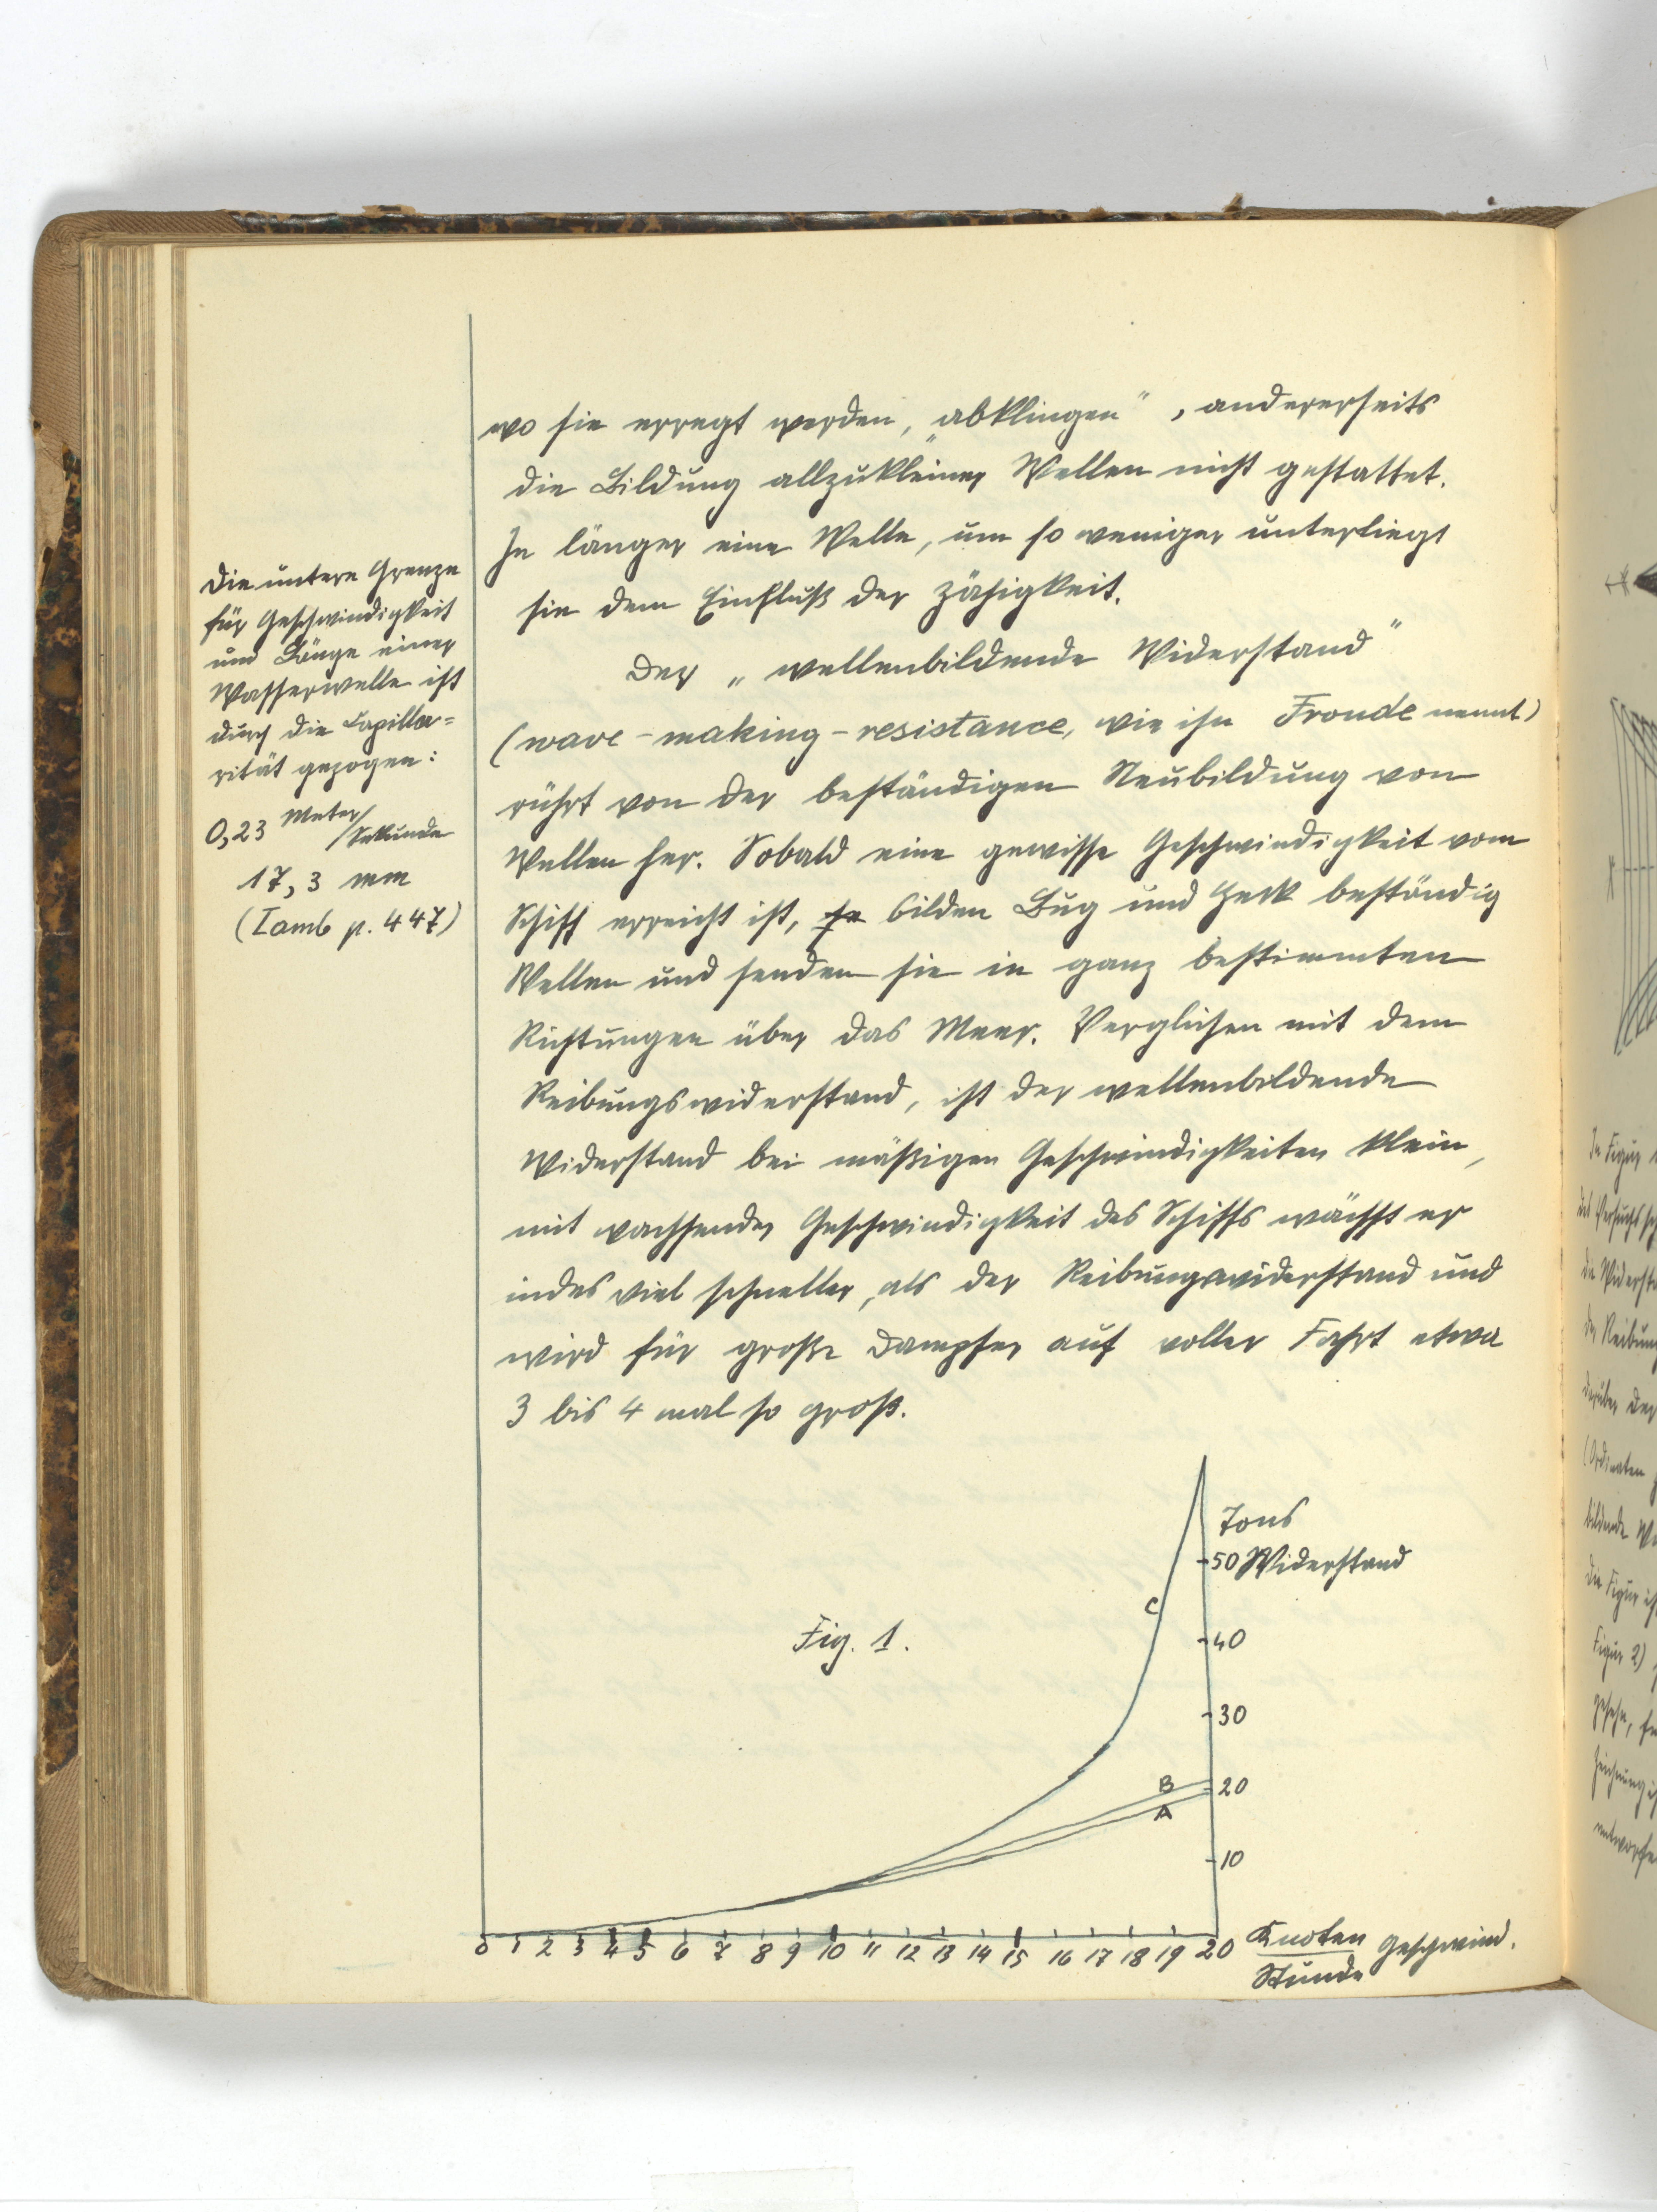 wo sie erregt werden, „abklingen“, andererseits
die Bildung allzukleiner Wellen nicht gestattet.
Je länger eine Welle, um so weniger unterliegt
sie dem Einfluß der Zähigkeit.
Der „wellenbildende Widerstand“
(wave-making-resistance, wie ihn Froude nennt)
rührt von der beständigen Neubildung von
Wellen her. Sobald eine gewisse Geschwindigkeit vom
Schiff erreicht ist, so bilden Bug und Heck beständig
Wellen und senden sie in ganz bestimmten
Richtungen über das Meer. Verglichen mit dem
Reibungswiderstand, ist der wellenbildende
Widerstand bei mäßigen Geschwindigkeiten klein,
mit wachsender Geschwindigkeit des Schiffs wächst er
indes viel schneller, als der Reibungswiderstand und
wird für große Dampfer auf voller Fahrt etwa
3 bis 4 mal so groß.
Die untere Grenze
für Geschwindigkeit
und Länge einer
Wasserwelle ist
durch die Capilla=
rität gezogen:
0,23 Meter/Sekunde
17,3 mm
(Lamb p. 447)
Fig. 1.
Tons
50 Widerstand
C
40
30
B
20
A
10
0 1 2 3 4 5 6 7 8 9 10 11 12 13 14 15 16 17 18 19 20
Knoten Geschwind.
Stunde
In Figur
des Versuchs
die Widerst
der Reibung
darüber der
(Ordinaten
bildende
die Figur
Figur 2)